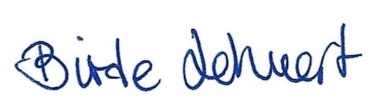 Birde Lehnert